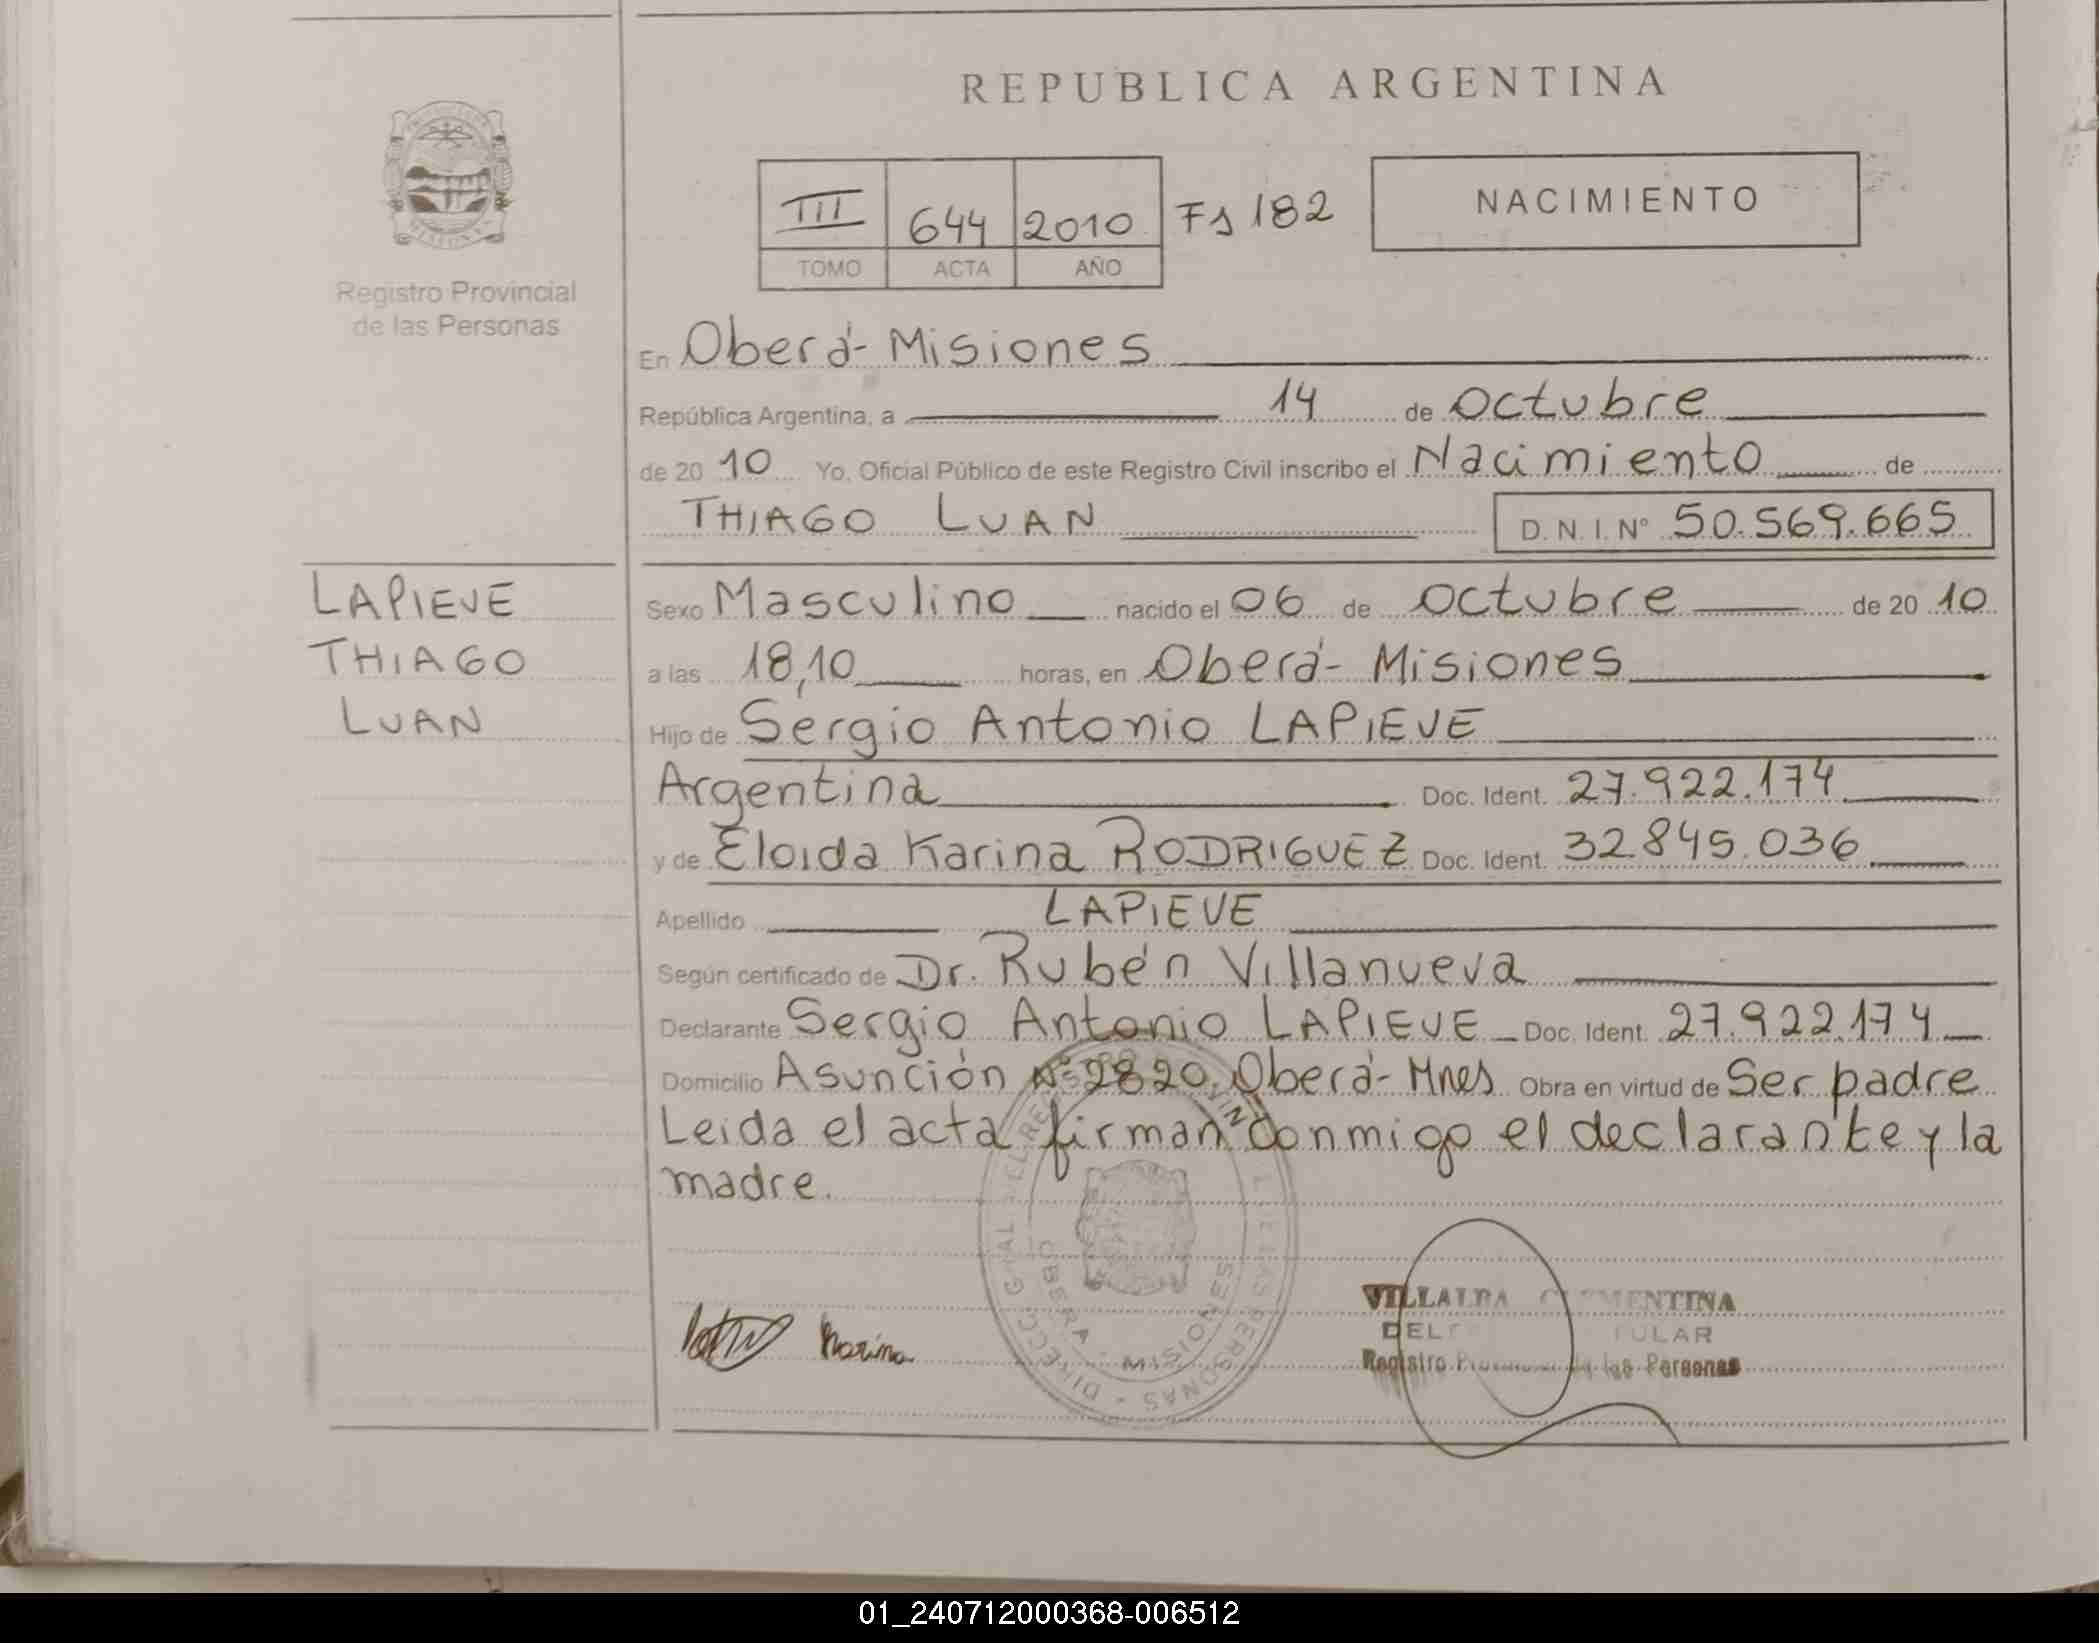 REPUBLICA ARGENTINA
III 644 2010 Fs 182 NACIMIENTO
TOMO ACTA AÑO
Registro Provincial
de las Personas
En Oberá - Misiones
República Argentina, a 14 de Octubre
de 20 10 Yo, Oficial Público de este Registro Civil inscribo el Nacimiento de
THIAGO LUAN D.N.I. Nº 50.569.665
LAPIEVE
THIAGO
LUAN
Sexo Masculino nacido el 06 de Octubre de 20 10
a las 18,10 horas, en Oberá - Misiones
Hijo de Sergio Antonio LAPIEVE
Argentina Doc. Ident. 27.922.174
y de Eloida Karina RODRIGUEZ Doc. Ident. 32.845.036
Apellido LAPIEVE
Según certificado de Dr. Rubén Villanueva
Declarante Sergio Antonio LAPIEVE Doc. Ident. 27.922.174
Domicilio Asunción Nº 2820, Oberá - Mnes Obra en virtud de Ser padre
Leida el acta firman conmigo el declarante y la
madre.
OBERA - MISIONES
Karina
VILLALBA CLEMENTINA
Registro de las Personas
01_240712000368-006512